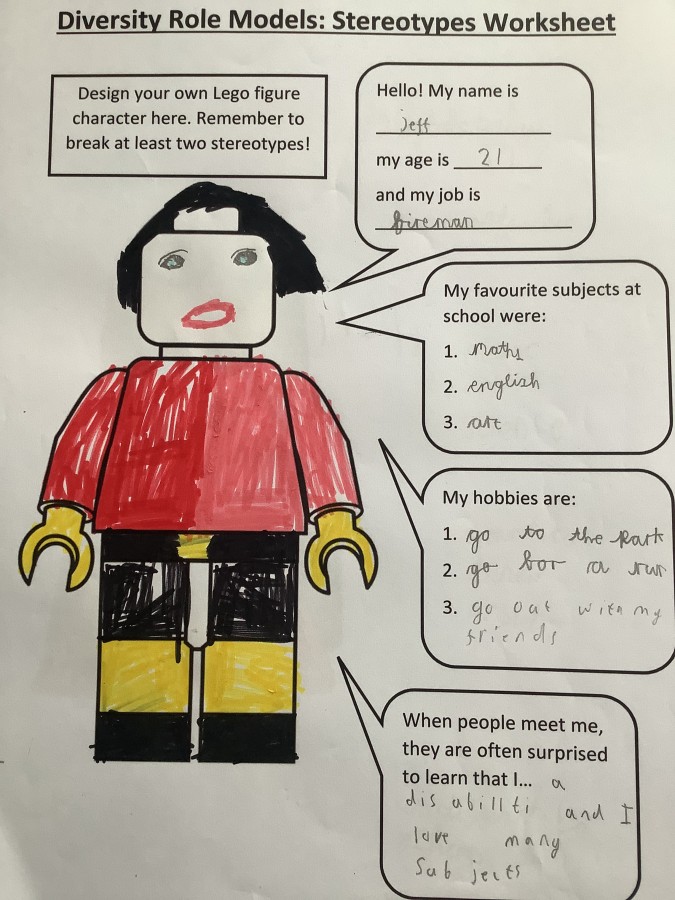 Diversity Role Models: Stereotypes Worksheet
Design your own Lego figure
character here. Remember to
break at least two stereotypes!
Hello! My name is
jeff
my age is 21
and my job is
fireman
My favourite subjects at
school were:
1. maths
2. english
3. art
My hobbies are:
1. go to the park
2. go for a run
3. go out with my
friends
When people meet me,
they are often surprised
to learn that I... a
disabillti and I
love many
Subjects